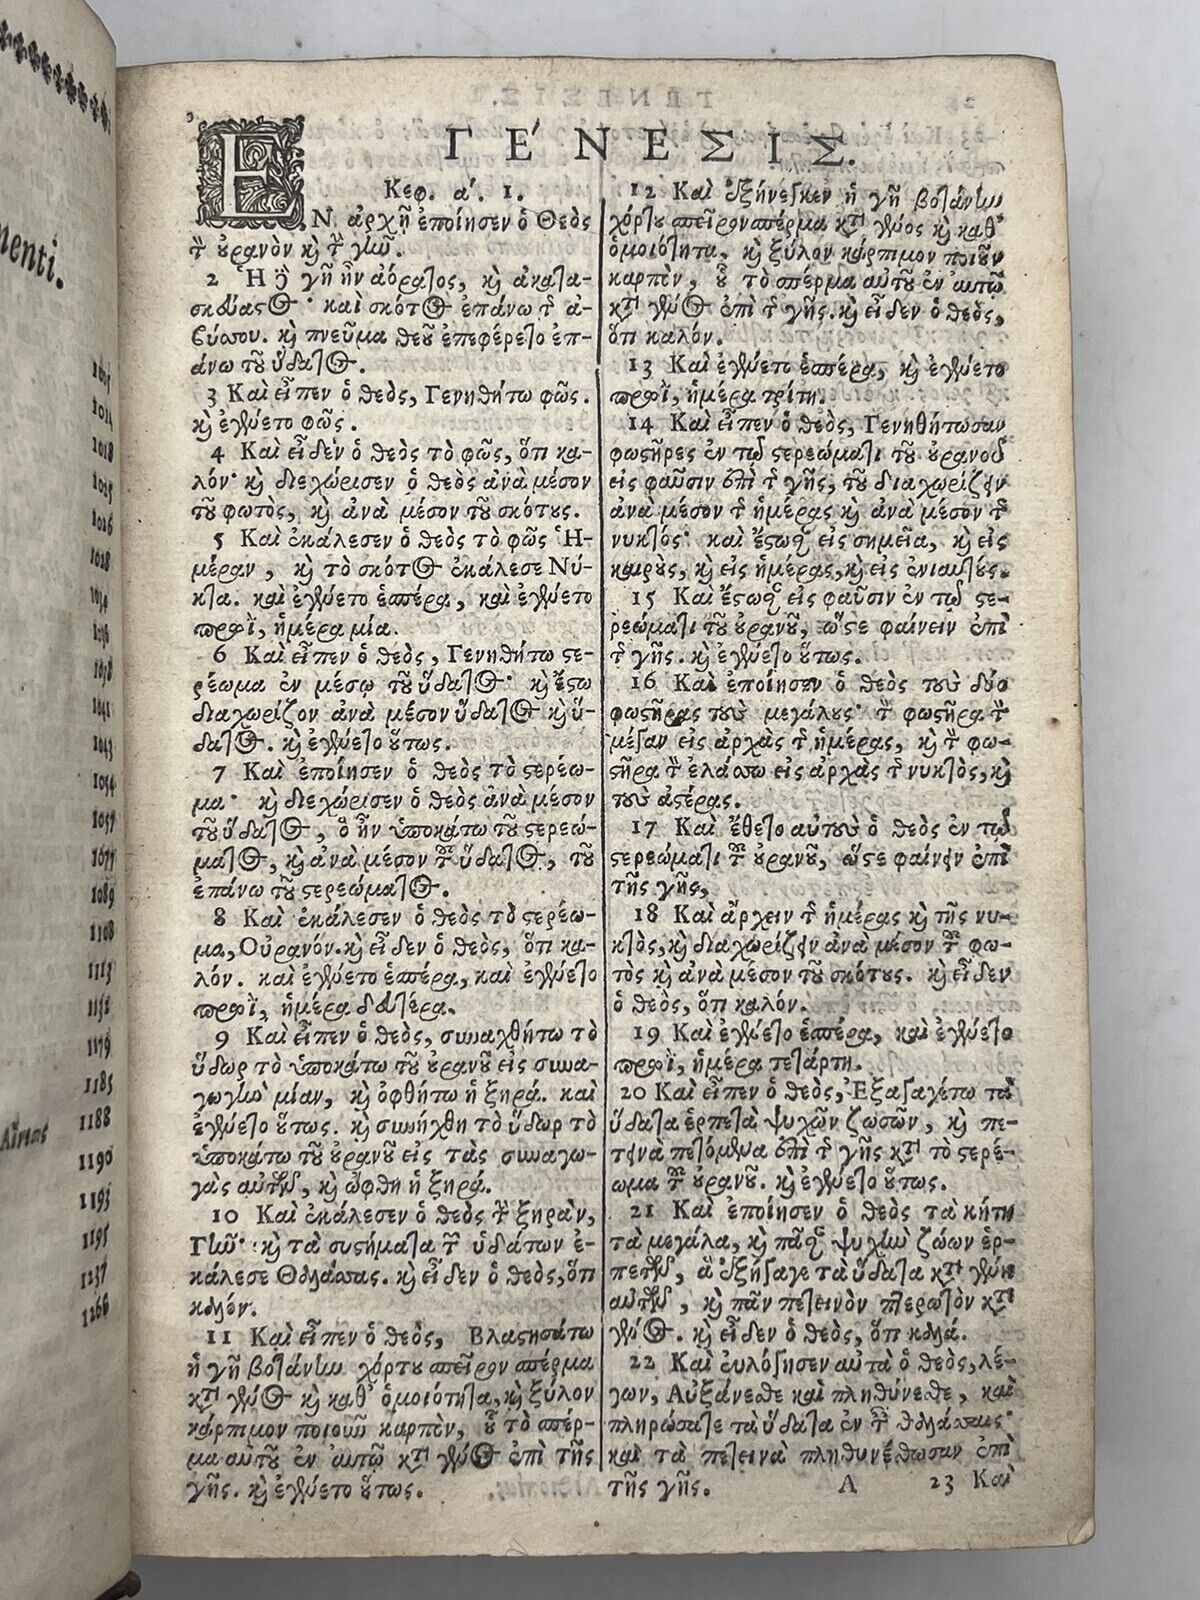 menti.
1015
1014
1018
1025
1026
1028
1034
1036
1038
1041
1043
1054
1057
1077
1089
1108
1113
1152
1179
1185
1188
1190
1193
1195
1237
1266
ΓΕ´ΝΕΣΙΣ.
Κεφ. α΄. 1.
ΕΝ ἀρχῇ ἐποίησεν ὁ Θεὸς
τὸν οὐρανὸν καὶ τὴν γῆν.
2 Ἡ δὲ γῆ ἦν ἀόρατος, καὶ ἀκατα-
σκεύαστος· καὶ σκότος ἐπάνω τῆς ἀ-
βύσσου. καὶ πνεῦμα θεοῦ ἐπεφέρετο ἐπ-
άνω τοῦ ὕδατος.
3 Καὶ εἶπεν ὁ θεὸς, Γενηθήτω φῶς.
καὶ ἐγένετο φῶς.
4 Καὶ εἶδεν ὁ θεὸς τὸ φῶς, ὅτι κα-
λόν· καὶ διεχώρισεν ὁ θεὸς ἀνὰ μέσον
τοῦ φωτὸς, καὶ ἀνὰ μέσον τοῦ σκότους.
5 Καὶ ἐκάλεσεν ὁ θεὸς τὸ φῶς Ἡ-
μέραν, καὶ τὸ σκότος ἐκάλεσε Νύ-
κτα. καὶ ἐγένετο ἑσπέρα, καὶ ἐγένετο
πρωῒ, ἡμέρα μία.
6 Καὶ εἶπεν ὁ θεὸς, Γενηθήτω στε-
ρέωμα ἐν μέσῳ τοῦ ὕδατος· καὶ ἔστω
διαχωρίζον ἀνὰ μέσον ὕδατος καὶ ὕ-
δατος. καὶ ἐγένετο οὕτως.
7 Καὶ ἐποίησεν ὁ θεὸς τὸ στερέω-
μα· καὶ διεχώρισεν ὁ θεὸς ἀνὰ μέσον
τοῦ ὕδατος, ὃ ἦν ὑποκάτω τοῦ στερεώ-
ματος, καὶ ἀνὰ μέσον τοῦ ὕδατος, τοῦ
ἐπάνω τοῦ στερεώματος.
8 Καὶ ἐκάλεσεν ὁ θεὸς τὸ στερέω-
μα, Οὐρανόν. καὶ εἶδεν ὁ θεὸς, ὅτι κα-
λόν. καὶ ἐγένετο ἑσπέρα, καὶ ἐγένετο
πρωῒ, ἡμέρα δευτέρα.
9 Καὶ εἶπεν ὁ θεὸς, συναχθήτω τὸ
ὕδωρ τὸ ὑποκάτω τοῦ οὐρανοῦ εἰς συνα-
γωγὴν μίαν, καὶ ὀφθήτω ἡ ξηρά. καὶ
ἐγένετο οὕτως. καὶ συνήχθη τὸ ὕδωρ τὸ
ὑποκάτω τοῦ οὐρανοῦ εἰς τὰς συναγω-
γὰς αὐτῶν, καὶ ὤφθη ἡ ξηρά.
10 Καὶ ἐκάλεσεν ὁ θεὸς τὴν ξηρὰν,
Γῆν· καὶ τὰ συστήματα τῶν ὑδάτων ἐ-
κάλεσε Θαλάσσας. καὶ εἶδεν ὁ θεὸς, ὅτι
καλόν.
11 Καὶ εἶπεν ὁ θεὸς, Βλαστησάτω
ἡ γῆ βοτάνην χόρτου σπεῖρον σπέρμα
κατὰ γένος καὶ καθ' ὁμοιότητα, καὶ ξύλον
κάρπιμον ποιοῦν καρπὸν, οὗ τὸ σπέρ-
μα αὐτοῦ ἐν αὐτῷ κατὰ γένος ἐπὶ τῆς
γῆς. καὶ ἐγένετο οὕτως.
12 Καὶ ἐξήνεγκεν ἡ γῆ βοτάνην
χόρτου σπεῖρον σπέρμα κατὰ γένος καὶ καθ'
ὁμοιότητα, καὶ ξύλον κάρπιμον ποιοῦν
καρπὸν, οὗ τὸ σπέρμα αὐτοῦ ἐν αὐτῷ
κατὰ γένος ἐπὶ τῆς γῆς. καὶ εἶδεν ὁ θεὸς,
ὅτι καλόν.
13 Καὶ ἐγένετο ἑσπέρα, καὶ ἐγένετο
πρωῒ, ἡμέρα τρίτη.
14 Καὶ εἶπεν ὁ θεὸς, Γενηθήτωσαν
φωστῆρες ἐν τῷ στερεώματι τοῦ οὐρανοῦ
εἰς φαῦσιν ἐπὶ τῆς γῆς, τοῦ διαχωρίζειν
ἀνὰ μέσον τῆς ἡμέρας καὶ ἀνὰ μέσον τῆς
νυκτός· καὶ ἔστωσαν εἰς σημεῖα, καὶ εἰς
καιροὺς, καὶ εἰς ἡμέρας, καὶ εἰς ἐνιαυτούς.
15 Καὶ ἔστωσαν εἰς φαῦσιν ἐν τῷ στε-
ρεώματι τοῦ οὐρανοῦ, ὥστε φαίνειν ἐπὶ
τῆς γῆς. καὶ ἐγένετο οὕτως.
16 Καὶ ἐποίησεν ὁ θεὸς τοὺς δύο
φωστῆρας τοὺς μεγάλους· τὸν φωστῆρα τὸν
μέγαν εἰς ἀρχὰς τῆς ἡμέρας, καὶ τὸν φω-
στῆρα τὸν ἐλάσσω εἰς ἀρχὰς τῆς νυκτὸς, καὶ
τοὺς ἀστέρας.
17 Καὶ ἔθετο αὐτοὺς ὁ θεὸς ἐν τῷ
στερεώματι τοῦ οὐρανοῦ, ὥστε φαίνειν ἐπὶ
τῆς γῆς,
18 Καὶ ἄρχειν τῆς ἡμέρας καὶ τῆς νυ-
κτὸς, καὶ διαχωρίζειν ἀνὰ μέσον τοῦ φω-
τὸς καὶ ἀνὰ μέσον τοῦ σκότους. καὶ εἶδεν
ὁ θεὸς, ὅτι καλόν.
19 Καὶ ἐγένετο ἑσπέρα, καὶ ἐγένετο
πρωῒ, ἡμέρα τετάρτη.
20 Καὶ εἶπεν ὁ θεὸς, Ἐξαγαγέτω τὰ
ὕδατα ἑρπετὰ ψυχῶν ζωσῶν, καὶ πε-
τεινὰ πετόμενα ἐπὶ τῆς γῆς κατὰ τὸ στερέ-
ωμα τοῦ οὐρανοῦ. καὶ ἐγένετο οὕτως.
21 Καὶ ἐποίησεν ὁ θεὸς τὰ κήτη
τὰ μεγάλα, καὶ πᾶσαν ψυχὴν ζώων ἑρ-
πετῶν, ἃ ἐξήγαγε τὰ ὕδατα κατὰ γένη
αὐτῶν, καὶ πᾶν πετεινὸν πτερωτὸν κατὰ
γένος. καὶ εἶδεν ὁ θεὸς, ὅτι καλά.
22 Καὶ εὐλόγησεν αὐτὰ ὁ θεὸς, λέ-
γων, Αὐξάνεσθε καὶ πληθύνεσθε, καὶ
πληρώσατε τὰ ὕδατα ἐν ταῖς θαλάσσαις·
καὶ τὰ πετεινὰ πληθυνέσθωσαν ἐπὶ
τῆς γῆς.
A 23 Καὶ